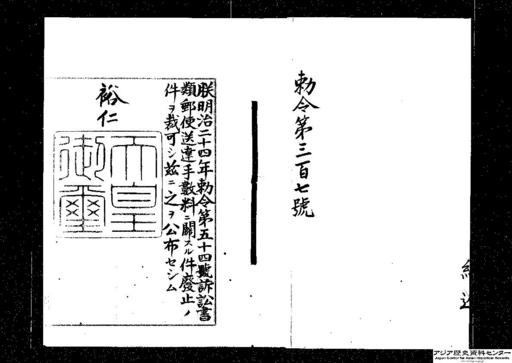 勅令第三百七號
朕明治二十四年勅令第五十四號訴訟書
類郵便送達手數料ニ關スル件廢止ノ
件ヲ裁可シ茲ニ之ヲ公布セシム
裕仁
天皇
御璽
アジア歴史資料センター
Japan Center for Asian Historical Records